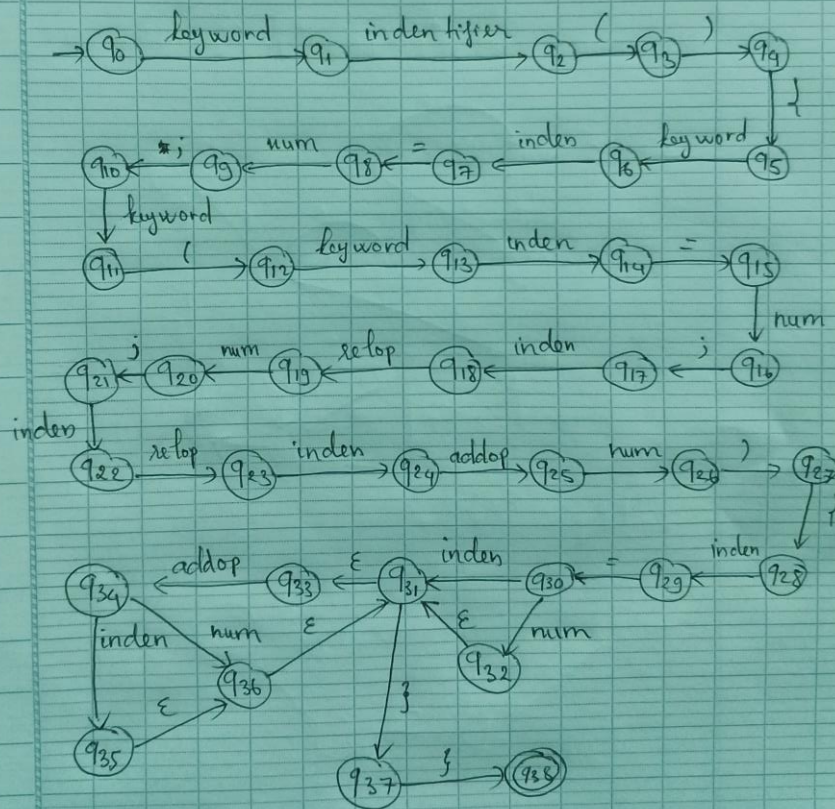 q0 keyword q1 indentifier q2 ( q3 ) q4
{
q10 ; q9 num q8 = q7 inden q6 keyword q5
keyword
q11 ( q12 keyword q13 inden q14 = q15
num
q21 ; q20 num q19 relop q18 inden q17 ; q16
inden
q22 relop q23 inden q24 addop q25 num q26 ) q27
{
q34 addop q33 ε q31 inden q30 = q29 inden q28
inden num ε ε num
q36 q32
ε }
q35
q37 } q38